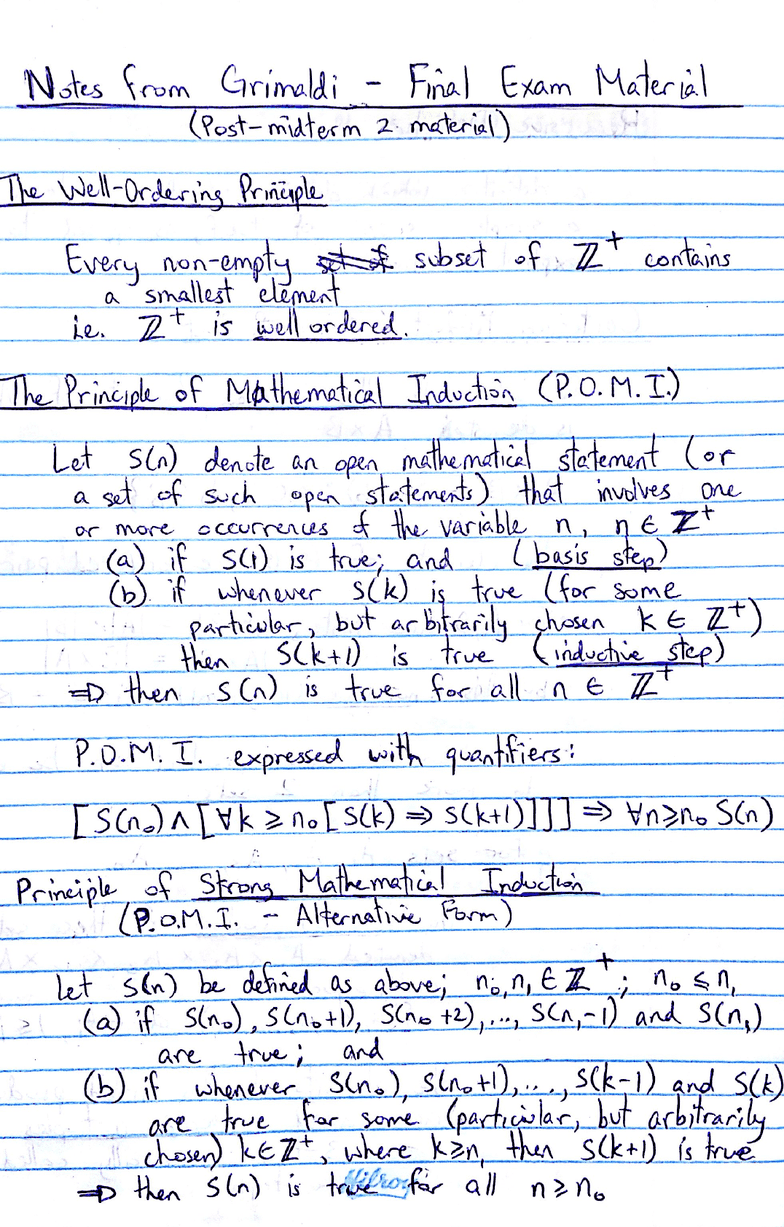 Notes from Grimaldi - Final Exam Material
(Post-midterm 2 material)
The Well-Ordering Principle
Every non-empty subset of ℤ⁺ contains
a smallest element
i.e. ℤ⁺ is well ordered.
The Principle of Mathematical Induction (P.O.M.I.)
Let S(n) denote an open mathematical statement (or
a set of such open statements) that involves one
or more occurrences of the variable n, n ∈ ℤ⁺
(a) if S(1) is true; and (basis step)
(b) if whenever S(k) is true (for some
particular, but arbitrarily chosen k ∈ ℤ⁺)
then S(k+1) is true (inductive step)
⇒ then S(n) is true for all n ∈ ℤ⁺
P.O.M.I. expressed with quantifiers:
[S(n₀) ∧ [∀k ≥ n₀ [S(k) ⇒ S(k+1)]]] ⇒ ∀n≥n₀ S(n)
Principle of Strong Mathematical Induction
(P.O.M.I. - Alternative Form)
Let S(n) be defined as above; n₀, n₁ ∈ ℤ⁺; n₀ ≤ n₁
(a) if S(n₀), S(n₀+1), S(n₀+2),..., S(n₁-1) and S(n₁)
are true; and
(b) if whenever S(n₀), S(n₀+1),..., S(k-1) and S(k)
are true for some (particular, but arbitrarily
chosen) k∈ℤ⁺, where k≥n₁ then S(k+1) is true
⇒ then S(n) is true for all n ≥ n₀
Hilroy